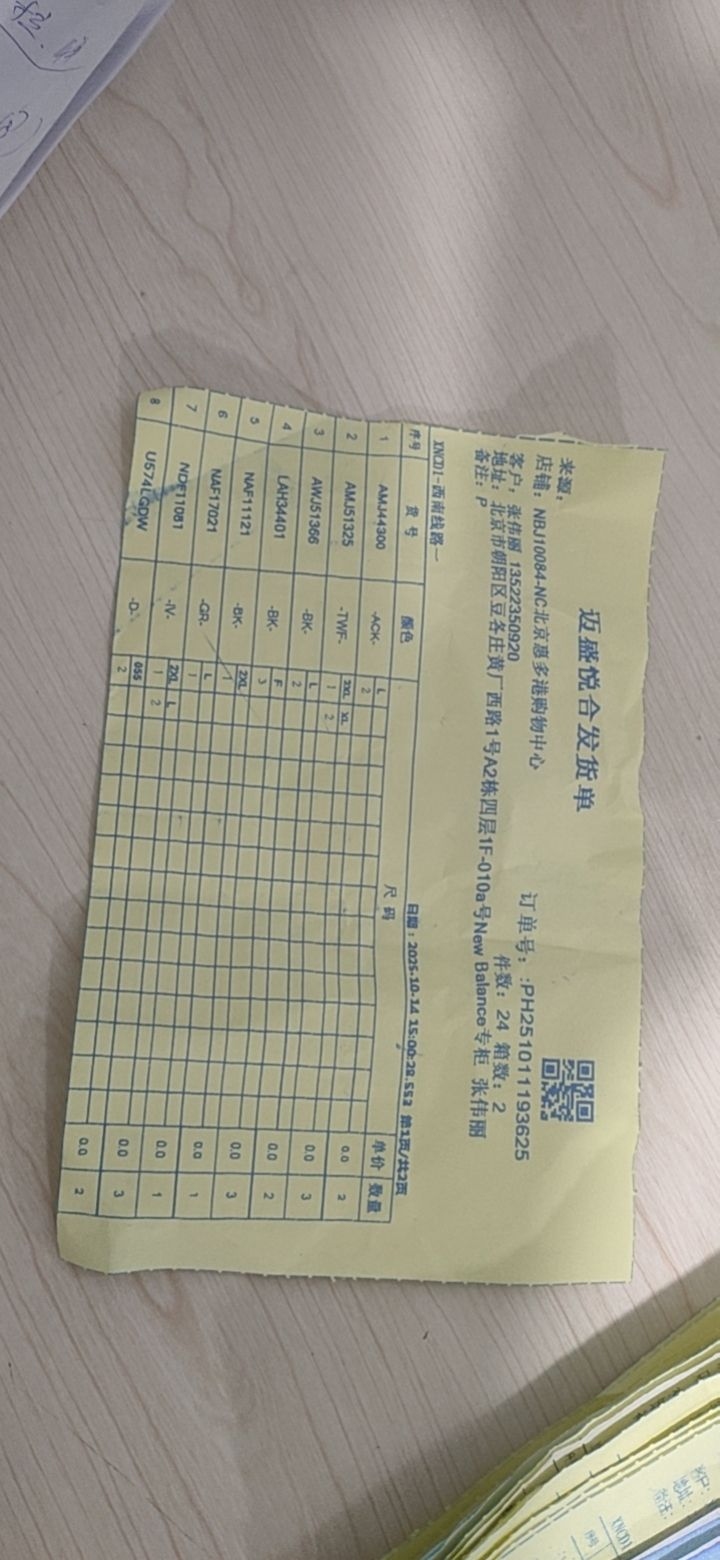 迈盛悦合发货单
来源:
店铺: NBJ10084-NC北京惠多港购物中心
订单号: :PH251011193625
客户: 张伟丽 13522350920
件数: 24 箱数: 2
地址: 北京市朝阳区豆各庄黄厂西路1号A2栋四层1F-010a号New Balance专柜 张伟丽
备注: P
XNCD1-西南线路一
日期: 2025-10-14 15:00:28.553 第1页/共2页
序号 货号 颜色 尺码 单价 数量
L
1 AMJ44300 -ACK- 2 0.0 2
2XL XL
2 AMJ51325 -TWF- 1 2 0.0 3
L
3 AWJ51366 -BK- 2 0.0 2
F
4 LAH34401 -BK- 3 0.0 3
2XL
5 NAF11121 -BK- 1 0.0 1
L
6 NAF17021 -GR- 1 0.0 1
2XL L
7 NDF11081 -IV- 1 2 0.0 3
055
8 U574LGDW -D- 2 0.0 2
客户:
地址:
备注:
XNCD1